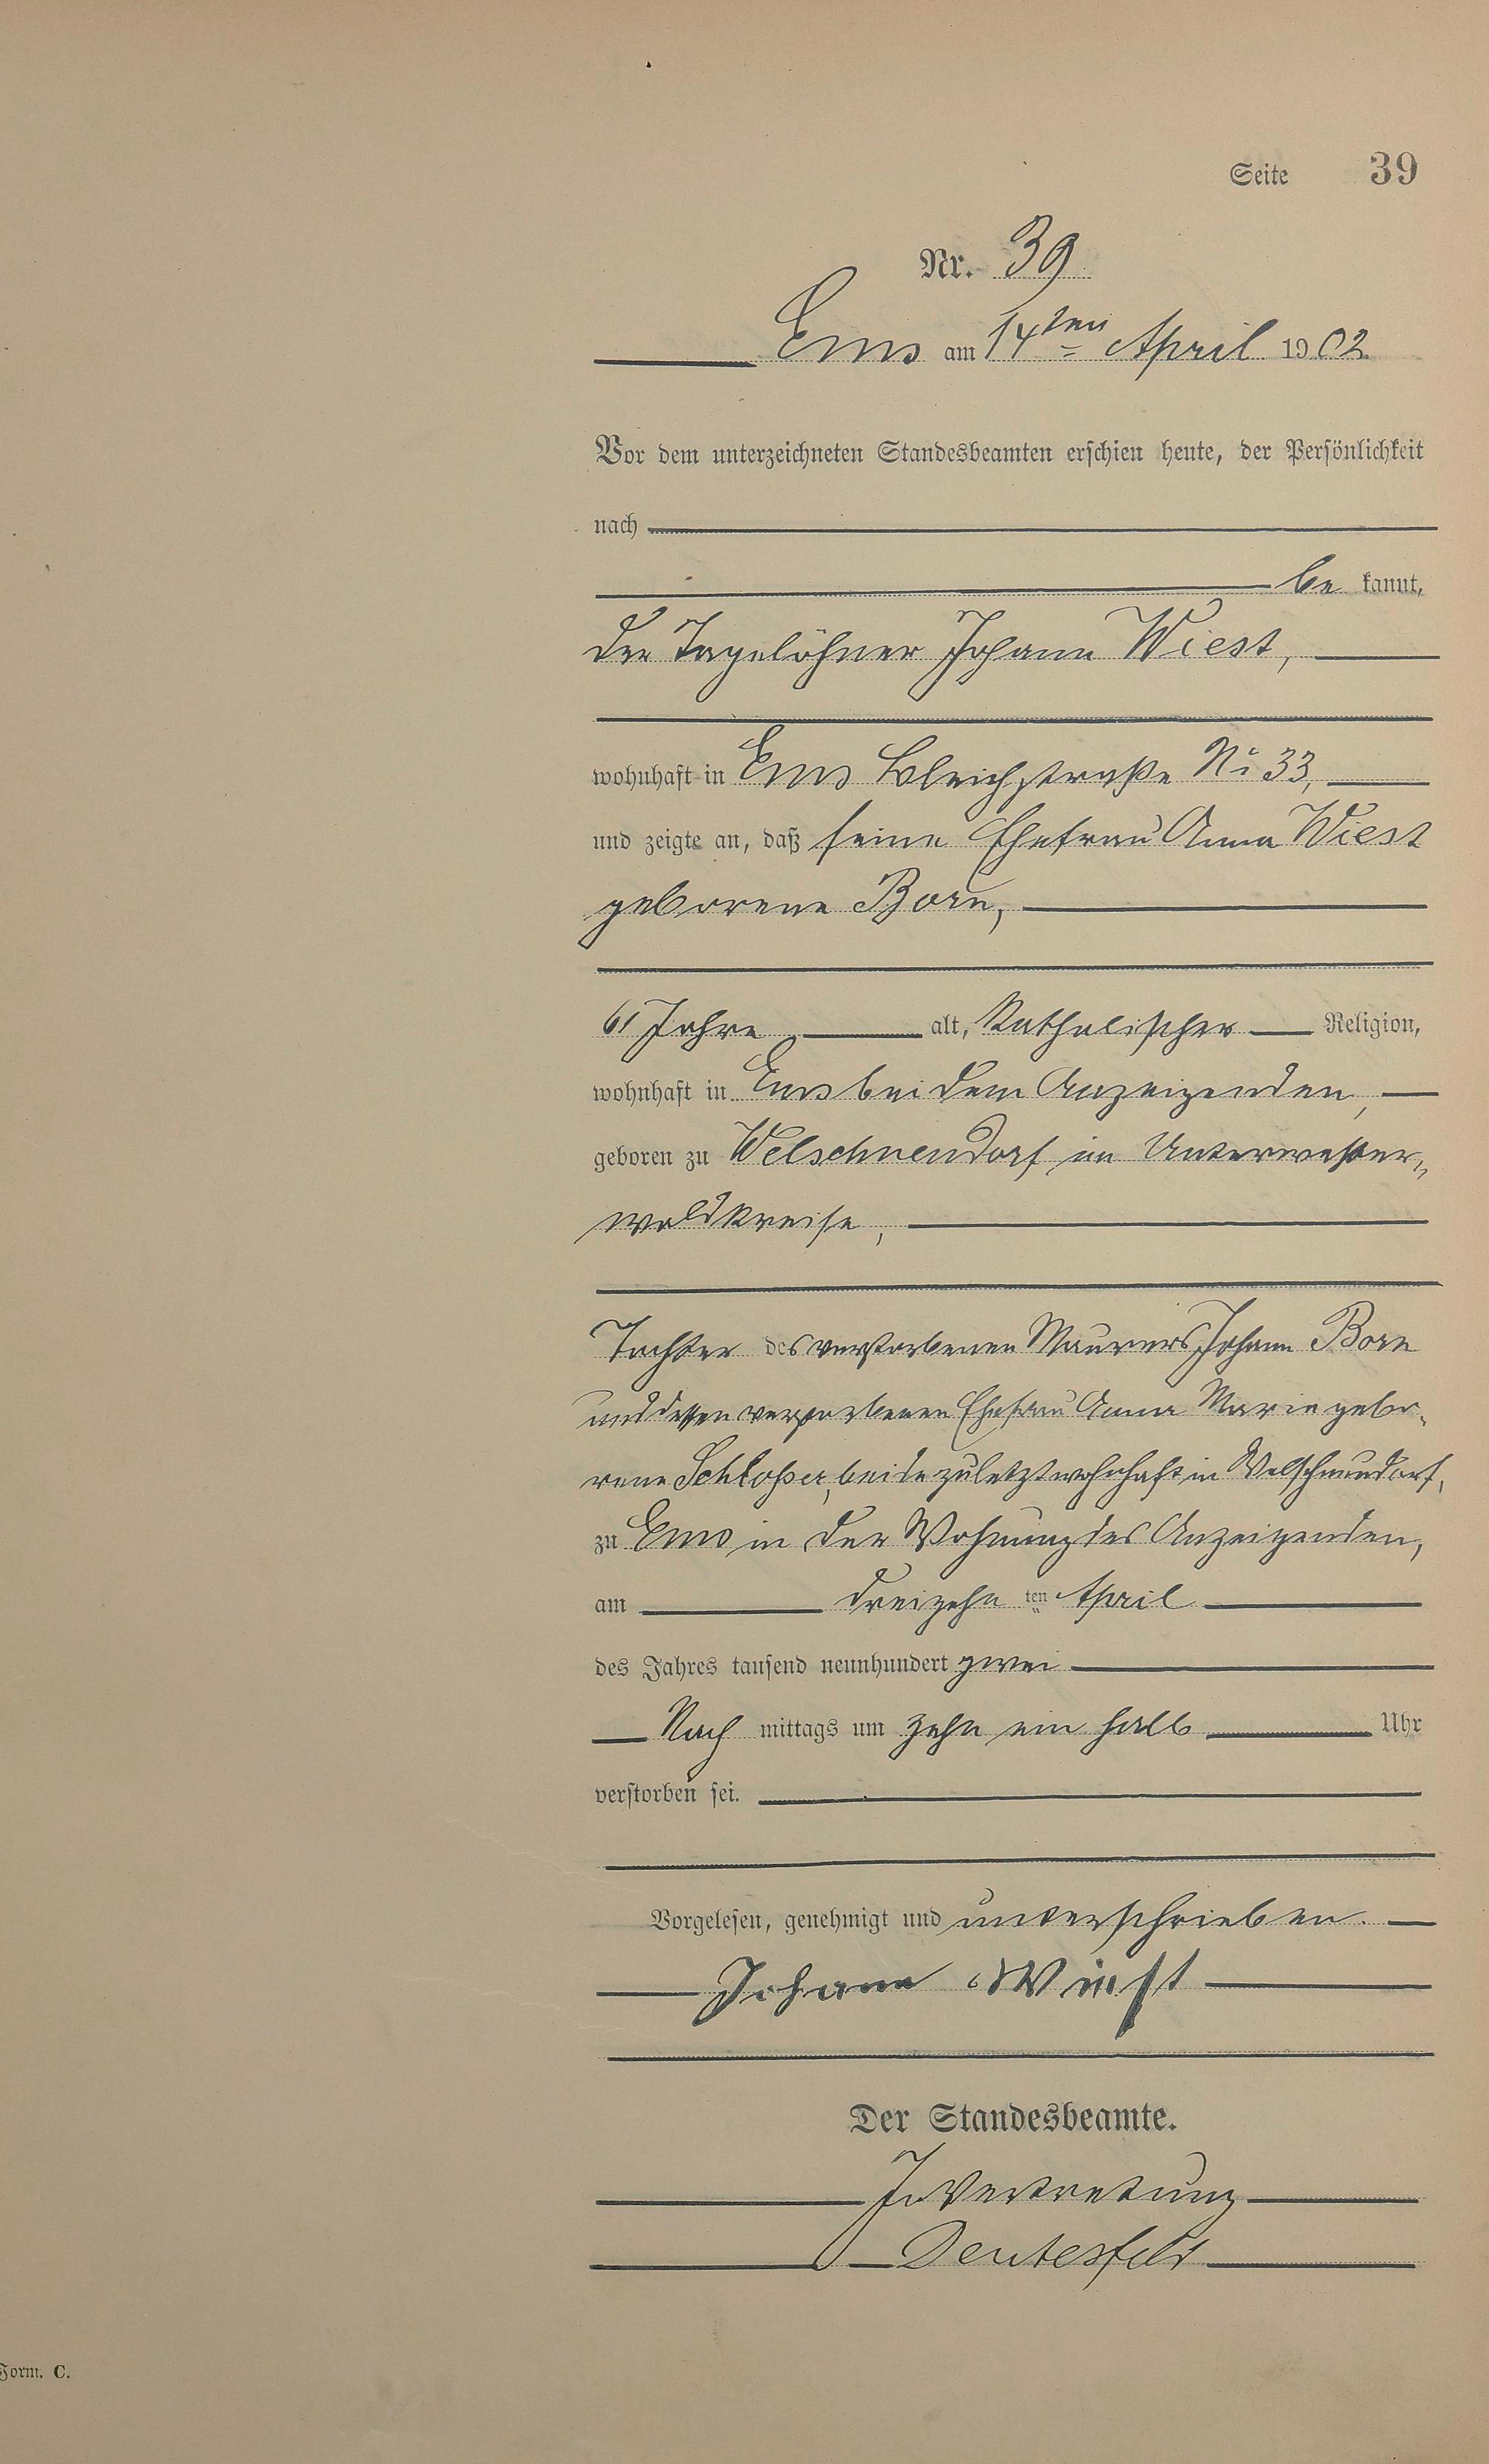 Seite 39
Nr. 39
Ems am 14ten April 1902.
Vor dem unterzeichneten Standesbeamten erschien heute, der Persönlichkeit
nach
be kannt,
der Tagelöhner Johann Wiest,
wohnhaft in Ems Bleichstraße No 33,
und zeigte an, daß seine Ehefrau Anna Wiest
geborene Born,
61 Jahre alt, Katholischer Religion,
wohnhaft in Ems bei dem Anzeigenden,
geboren zu Welschneudorf im Unterwester„
waldkreise,
Tochter des verstorbenen Maurers Johann Born
und dessen verstorbenen Ehefrau Anna Marie gebo-
rene Schloßer, beide zuletzt wohnhaft in Welschneudorf,
zu Ems in der Wohnung des Anzeigenden,
am dreizehn ten April
des Jahres tausend neunhundert zwei
Nach mittags um zehn ein halb Uhr
verstorben sei.
Vorgelesen, genehmigt und unterschrieben.
Johann Wiest
Der Standesbeamte.
In Vertretung
Form. C.